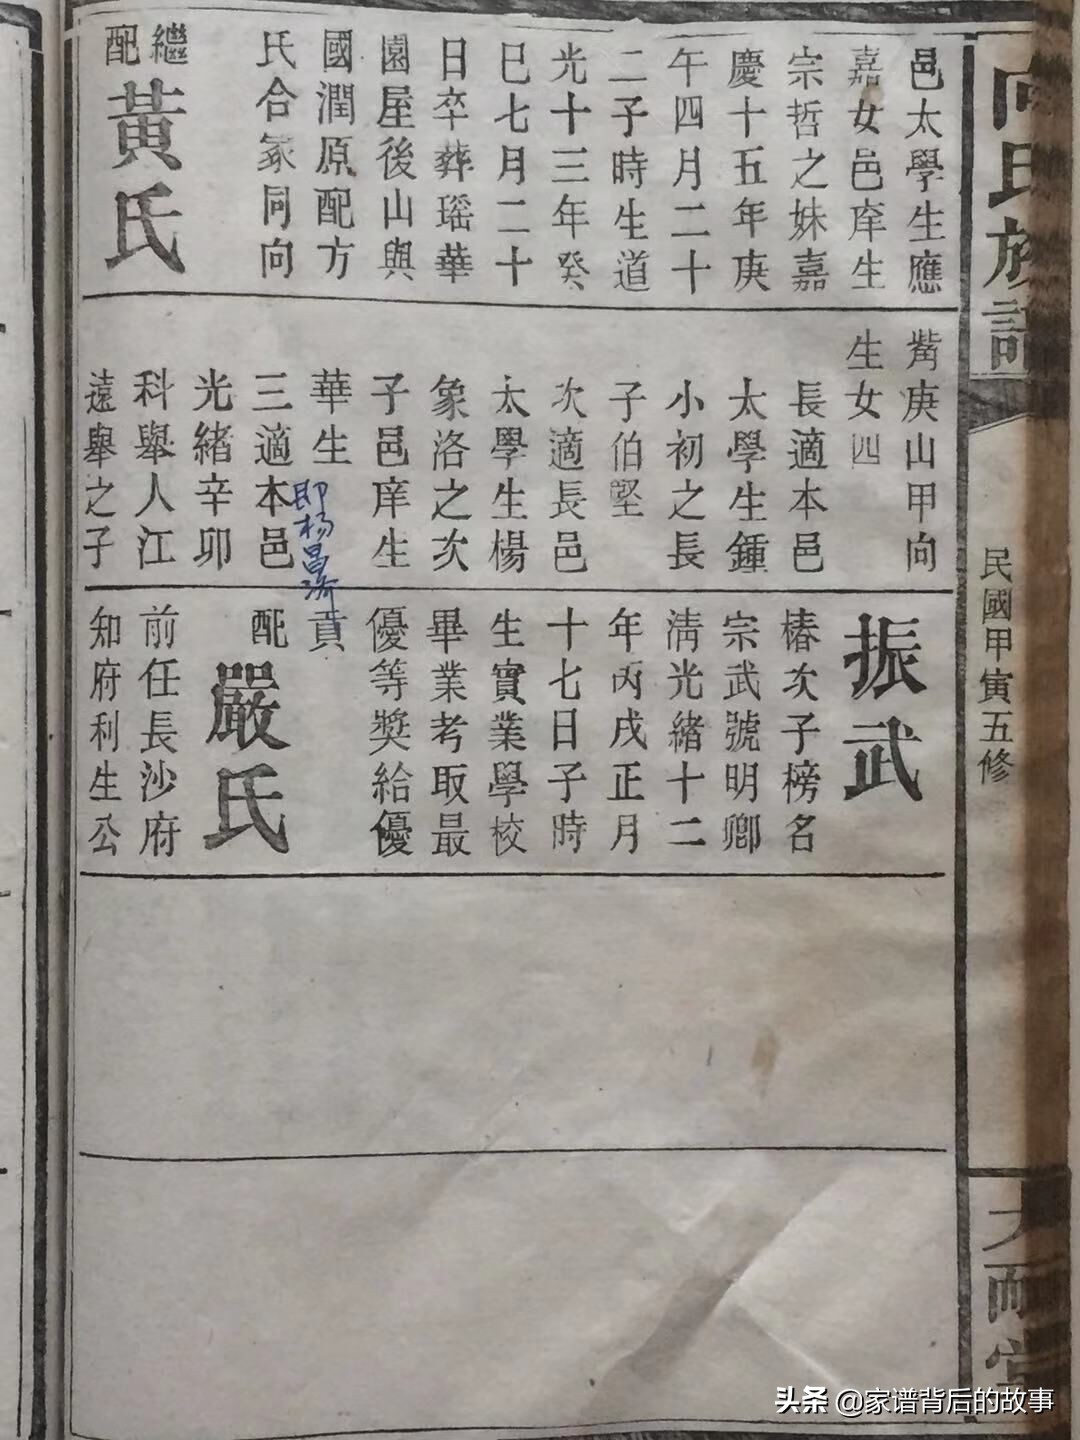 向氏族譜
民國甲寅五修
邑太學生應
嘉女邑庠生
宗哲之妹嘉
慶十五年庚
午四月二十
二子時生道
光十三年癸
巳七月二十
日卒葬瑶華
園屋後山與
國潤原配方
氏合冢同向
繼配
黃氏
觜庚山甲向
生女四
長適本邑
太學生鍾
小初之長
子伯堅
次適長邑
太學生楊
象洛之次
子邑庠生
華生
即杨昌济
三適本邑
光緒辛卯
科舉人江
遠舉之子
振武
椿次子榜名
宗武號明卿
淸光緒十二
年丙戌正月
十七日子時
生實業學校
畢業考取最
優等奬給優
貢
配
嚴氏
前任長沙府
知府利生公
头条 @家谱背后的故事